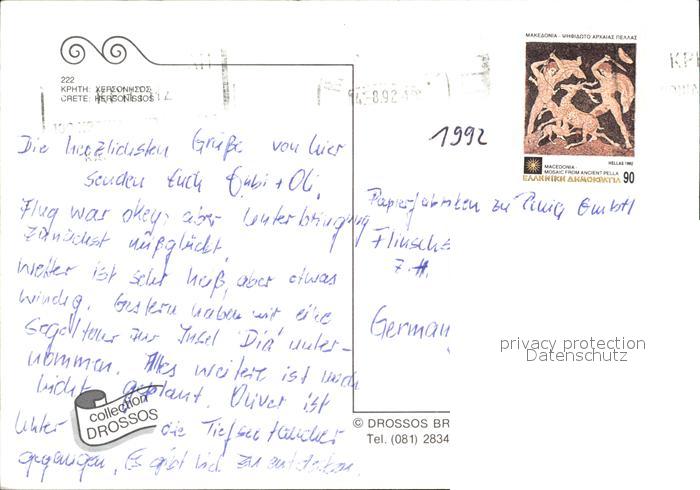 222
ΚΡΗΤΗ: ΧΕΡΣΟΝΗΣΟΣ
CRETE: HERSONISSOS
8.92
1992
ΜΑΚΕΔΟΝΙΑ - ΨΗΦΙΔΩΤΟ ΑΡΧΑΙΑΣ ΠΕΛΛΑΣ
HELLAS 1992
MACEDONIA -
MOSAIC FROM ANCIENT PELLA
ΕΛΛΗΝΙΚΗ ΔΗΜΟΚΡΑΤΙΑ 90
Die herzlichsten Grüße von hier
senden Euch Gabi + Oli.
Flug war okey, aber Unterbringung
zunächst mißglückt.
Wetter ist sehr heiß, aber etwas
windig. Gestern haben wir eine
Segeltour zur Insel Dia unter-
nommen. Alles weitere ist noch
nicht geplant. Oliver ist
unter die Tieftaucher
gegangen. Es gibt viel zu entdecken.
Papierfabriken zu Penig GmbH
Flinsch
z. H.
German
privacy protection
Datenschutz
collection
DROSSOS
© DROSSOS BR
Tel. (081) 2834